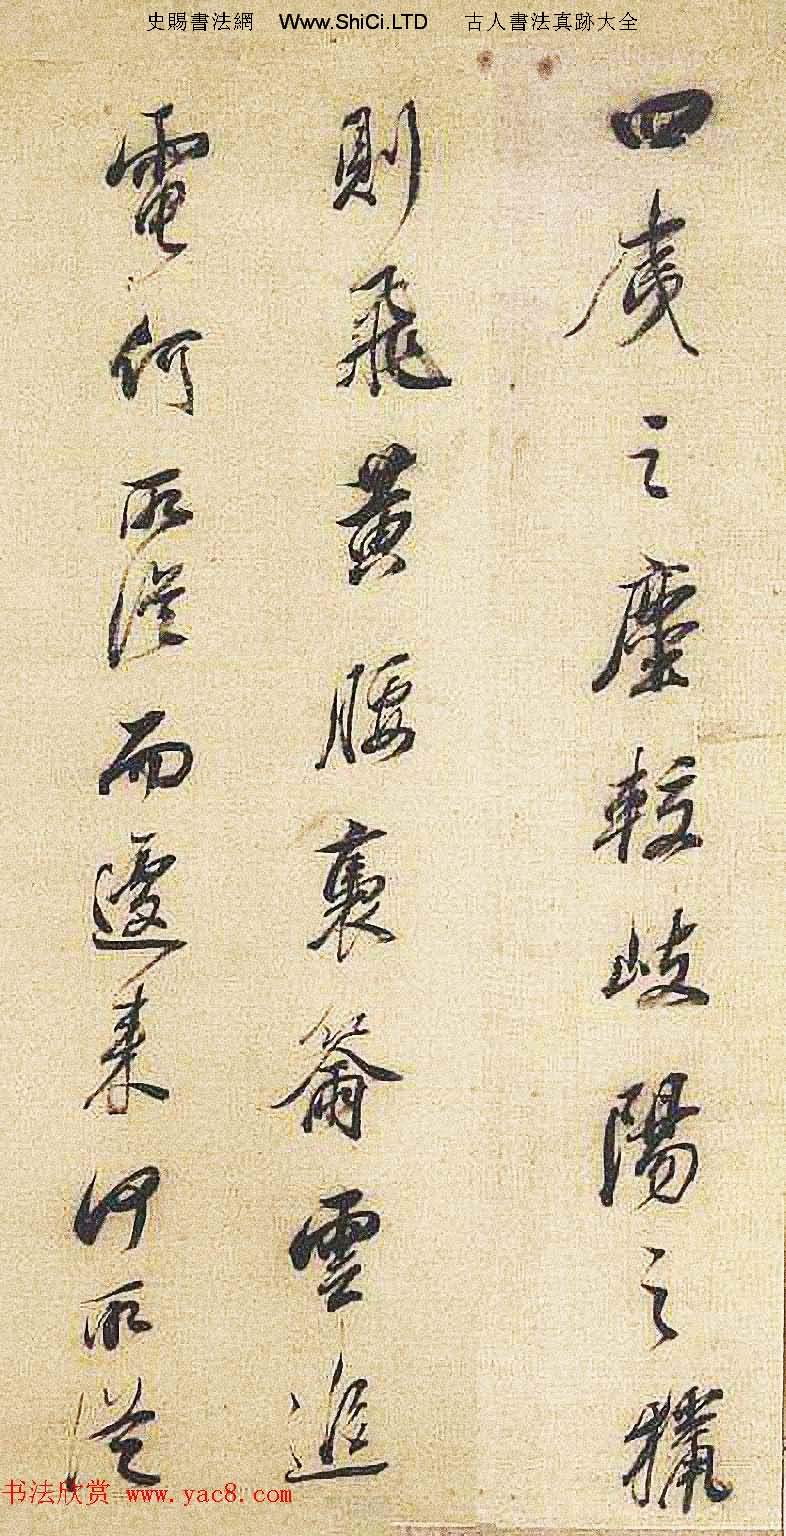 史賜書法網 Www.ShiCi.LTD 古人書法真跡大全
四夷之塵較岐陽之獵
則飛黃腰裹籋雲追
電何所從而遽来何所從
书法欣赏 www.yac8.com